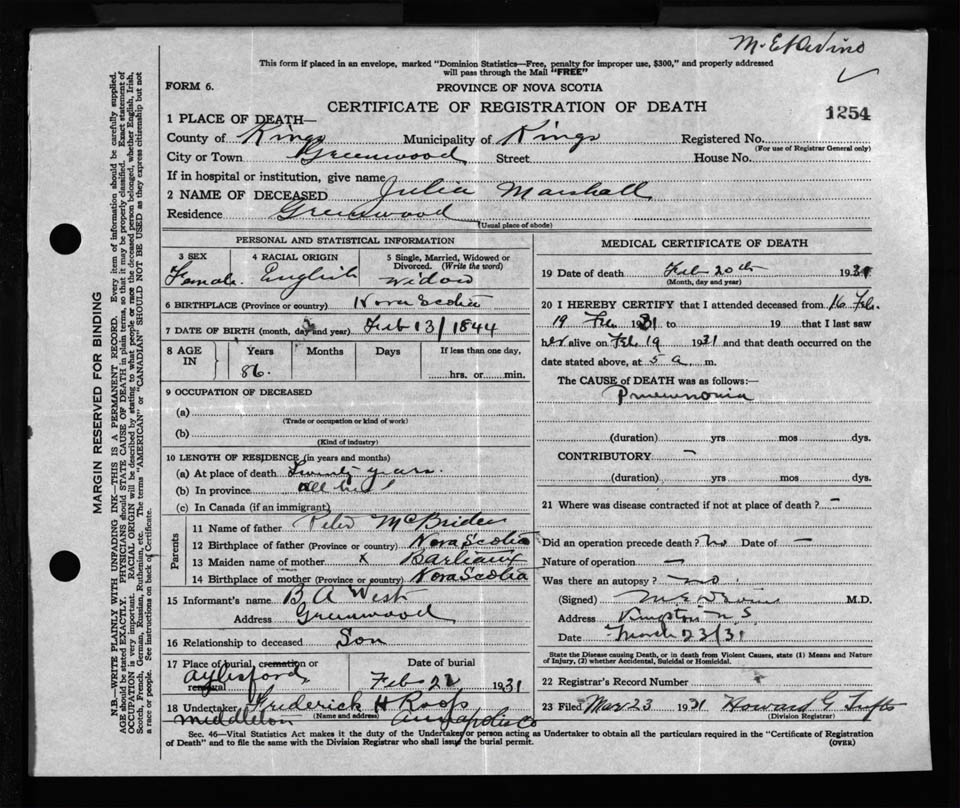 This form if placed in an envelope, marked "Dominion Statistics—Free, penalty for improper use, $300," and properly addressed
will pass through the Mail "FREE"
FORM 6.
PROVINCE OF NOVA SCOTIA
CERTIFICATE OF REGISTRATION OF DEATH
1254
1 PLACE OF DEATH—
County of Kings Municipality of Kings Registered No.
(For use of Registrar General only)
City or Town Greenwood Street House No.
If in hospital or institution, give name
2 NAME OF DECEASED Julia Marshall
Residence Greenwood
(Usual place of abode)
PERSONAL AND STATISTICAL INFORMATION
3 SEX Female
4 RACIAL ORIGIN English
5 Single, Married, Widowed or
Divorced. (Write the word)
Widow
6 BIRTHPLACE (Province or country) Nova Scotia
7 DATE OF BIRTH (month, day and year) Feb 13/1844
8 AGE IN Years Months Days If less than one day,
86. hrs. or min.
9 OCCUPATION OF DECEASED
(a)
(Trade or occupation or kind of work)
(b)
(Kind of industry)
10 LENGTH OF RESIDENCE (in years and months)
(a) At place of death Twenty years.
(b) In province all life
(c) In Canada (if an immigrant)
Parents
11 Name of father Peter McBride
12 Birthplace of father (Province or country) Nova Scotia
13 Maiden name of mother x Barteaux
14 Birthplace of mother (Province or country) Nova Scotia
15 Informant's name B A West
Address Greenwood
16 Relationship to deceased Son
17 Place of burial, cremation or
removal Aylesford
Date of burial
Feb 22 1931
18 Undertaker Frederick H Roop
(Name and address)
Middleton Annapolis Co
MEDICAL CERTIFICATE OF DEATH
19 Date of death Feb 20th 1931
(Month, day and year)
20 I HEREBY CERTIFY that I attended deceased from 16 Feb.
19 Feb 1931 to 19 that I last saw
her alive on Feb 19 1931 and that death occurred on the
date stated above, at 5 a. m.
The CAUSE OF DEATH was as follows:—
Pneumonia
(duration) yrs mos dys.
CONTRIBUTORY —
(duration) yrs mos dys.
21 Where was disease contracted if not at place of death? —
Did an operation precede death? No Date of —
Nature of operation —
Was there an autopsy? no.
(Signed) M.D.
Address Kingston N S
Date March 23/31
State the Disease causing Death, or in death from Violent Causes, state (1) Means and Nature
of Injury, (2) whether Accidental, Suicidal or Homicidal.
22 Registrar's Record Number
23 Filed Mar 23 1931 Howard G Tufts
(Division Registrar)
Sec. 46—Vital Statistics Act makes it the duty of the Undertaker or person acting as Undertaker to obtain all the particulars required in the "Certificate of Registration
of Death" and to file the same with the Division Registrar who shall issue the burial permit.
(OVER)
MARGIN RESERVED FOR BINDING
N.B.—WRITE PLAINLY WITH UNFADING INK—THIS IS A PERMANENT RECORD. Every item of information should be carefully supplied.
AGE should be stated EXACTLY. PHYSICIANS should STATE CAUSE OF DEATH in plain terms, so that it may be properly classified. Exact statement of
OCCUPATION is very important. RACIAL ORIGIN will be described by stating to what people or race the deceased person belonged, whether English, Irish,
Scotch, French, German, Russian, Ruthenian, etc. The terms "AMERICAN" or "CANADIAN" SHOULD NOT BE USED as they express citizenship but not
a race or people. See instructions on back of Certificate.